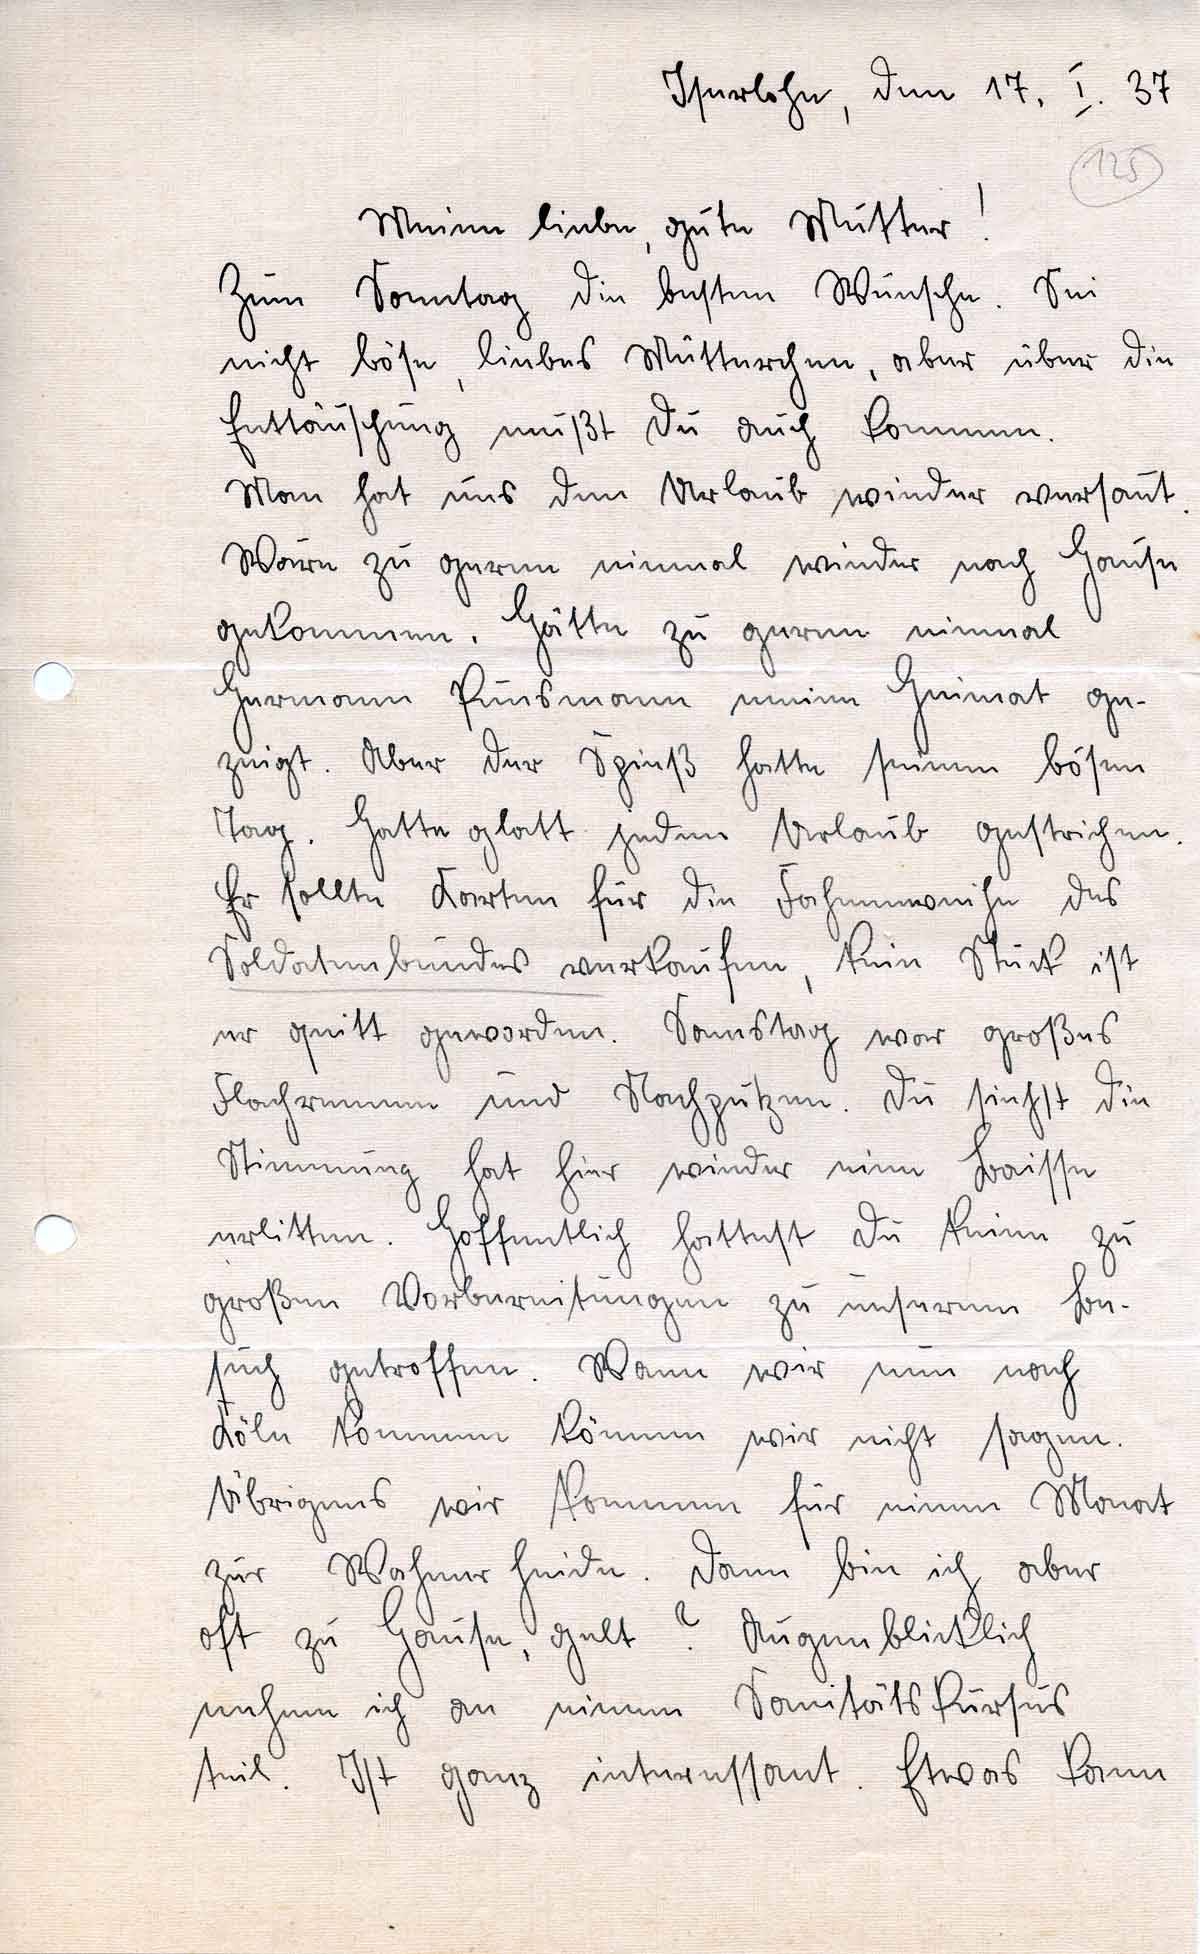 Iserlohn, den 17. I. 37
125
Meine liebe, gute Mutter!
Zum Sonntag die besten Wünsche. Sei
nicht böse, liebes Mütterchen, aber über die
Enttäuschung mußt Du auch kommen.
Man hat uns den Urlaub wieder versaut.
Wäre zu gerne einmal wieder nach Hause
gekommen. Hätte zu gerne einmal
Hermann Kensmann meine Heimat ge-
zeigt. Aber der Spieß hatte seinen bösen
Tag. Hatte glatt jeden Urlaub gestrichen.
Er sollte Karten für die Fahnenweihe des
Soldatenbundes verkaufen, kein Stück ist
er quitt geworden. Samstag war großes
Flachrennen und Nachputzen. Du siehst die
Stimmung hat hier wieder eine Baisse
erlitten. Hoffentlich hattest Du keine zu
großen Vorbereitungen zu unserem Be-
such getroffen. Wann wir nun nach
Köln kommen können wir nicht sagen.
Übrigens wir kommen für einen Monat
zur Wahner Heide. Dann bin ich aber
oft zu Hause, gelt? Augenblicklich
nehme ich an einem Sanitätskursus
teil. Ist ganz interessant. Etwas kann